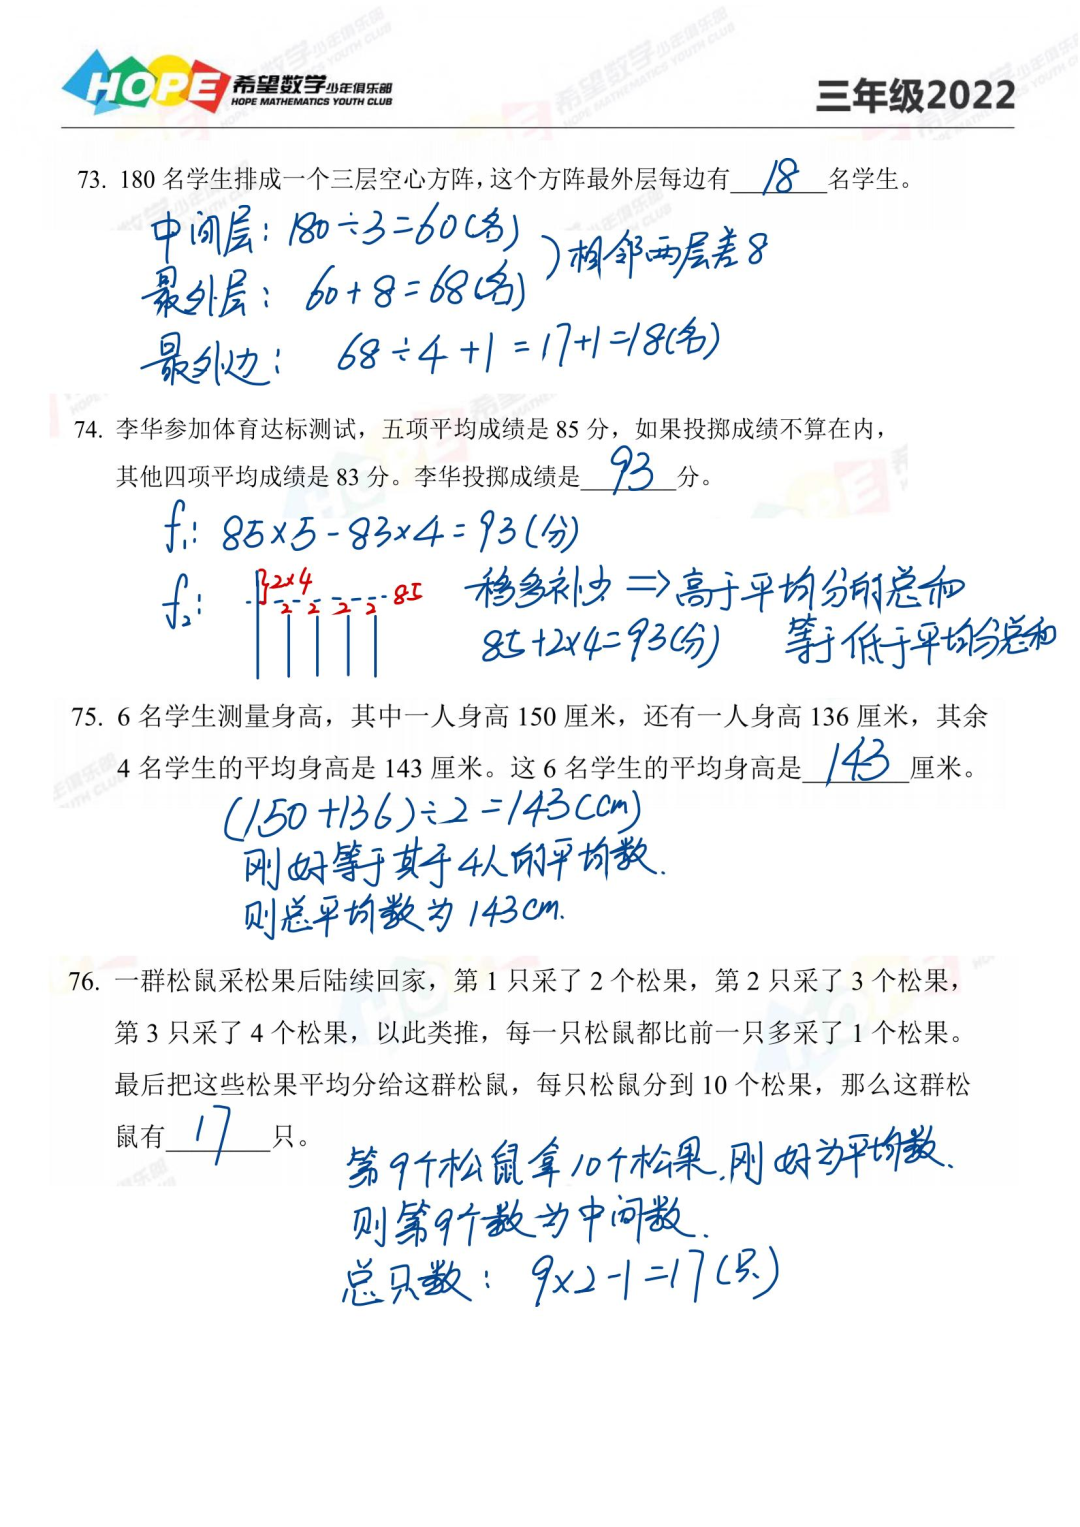 HOPE 希望数学少年俱乐部
HOPE MATHEMATICS YOUTH CLUB
三年级2022
73. 180 名学生排成一个三层空心方阵，这个方阵最外层每边有 18 名学生。
中间层: 180÷3=60(名)
)相邻两层差8
最外层: 60+8=68(名)
最外边: 68÷4+1=17+1=18(名)
74. 李华参加体育达标测试，五项平均成绩是 85 分，如果投掷成绩不算在内，
其他四项平均成绩是 83 分。李华投掷成绩是 93 分。
f₁: 85×5-83×4=93(分)
f₂: 2×4 2 2 2 2 85 移多补少 ⇒高于平均分的总和
85+2×4=93(分) 等于低于平均分总和
75. 6 名学生测量身高，其中一人身高 150 厘米，还有一人身高 136 厘米，其余
4 名学生的平均身高是 143 厘米。这 6 名学生的平均身高是 143 厘米。
(150+136)÷2=143(cm)
刚好等于其于4人的平均数.
则总平均数为143cm.
76. 一群松鼠采松果后陆续回家，第 1 只采了 2 个松果，第 2 只采了 3 个松果，
第 3 只采了 4 个松果，以此类推，每一只松鼠都比前一只多采了 1 个松果。
最后把这些松果平均分给这群松鼠，每只松鼠分到 10 个松果，那么这群松
鼠有 17 只。
第9个松鼠拿10个松果,刚好为平均数.
则第9个数为中间数.
总只数: 9×2-1=17(只)